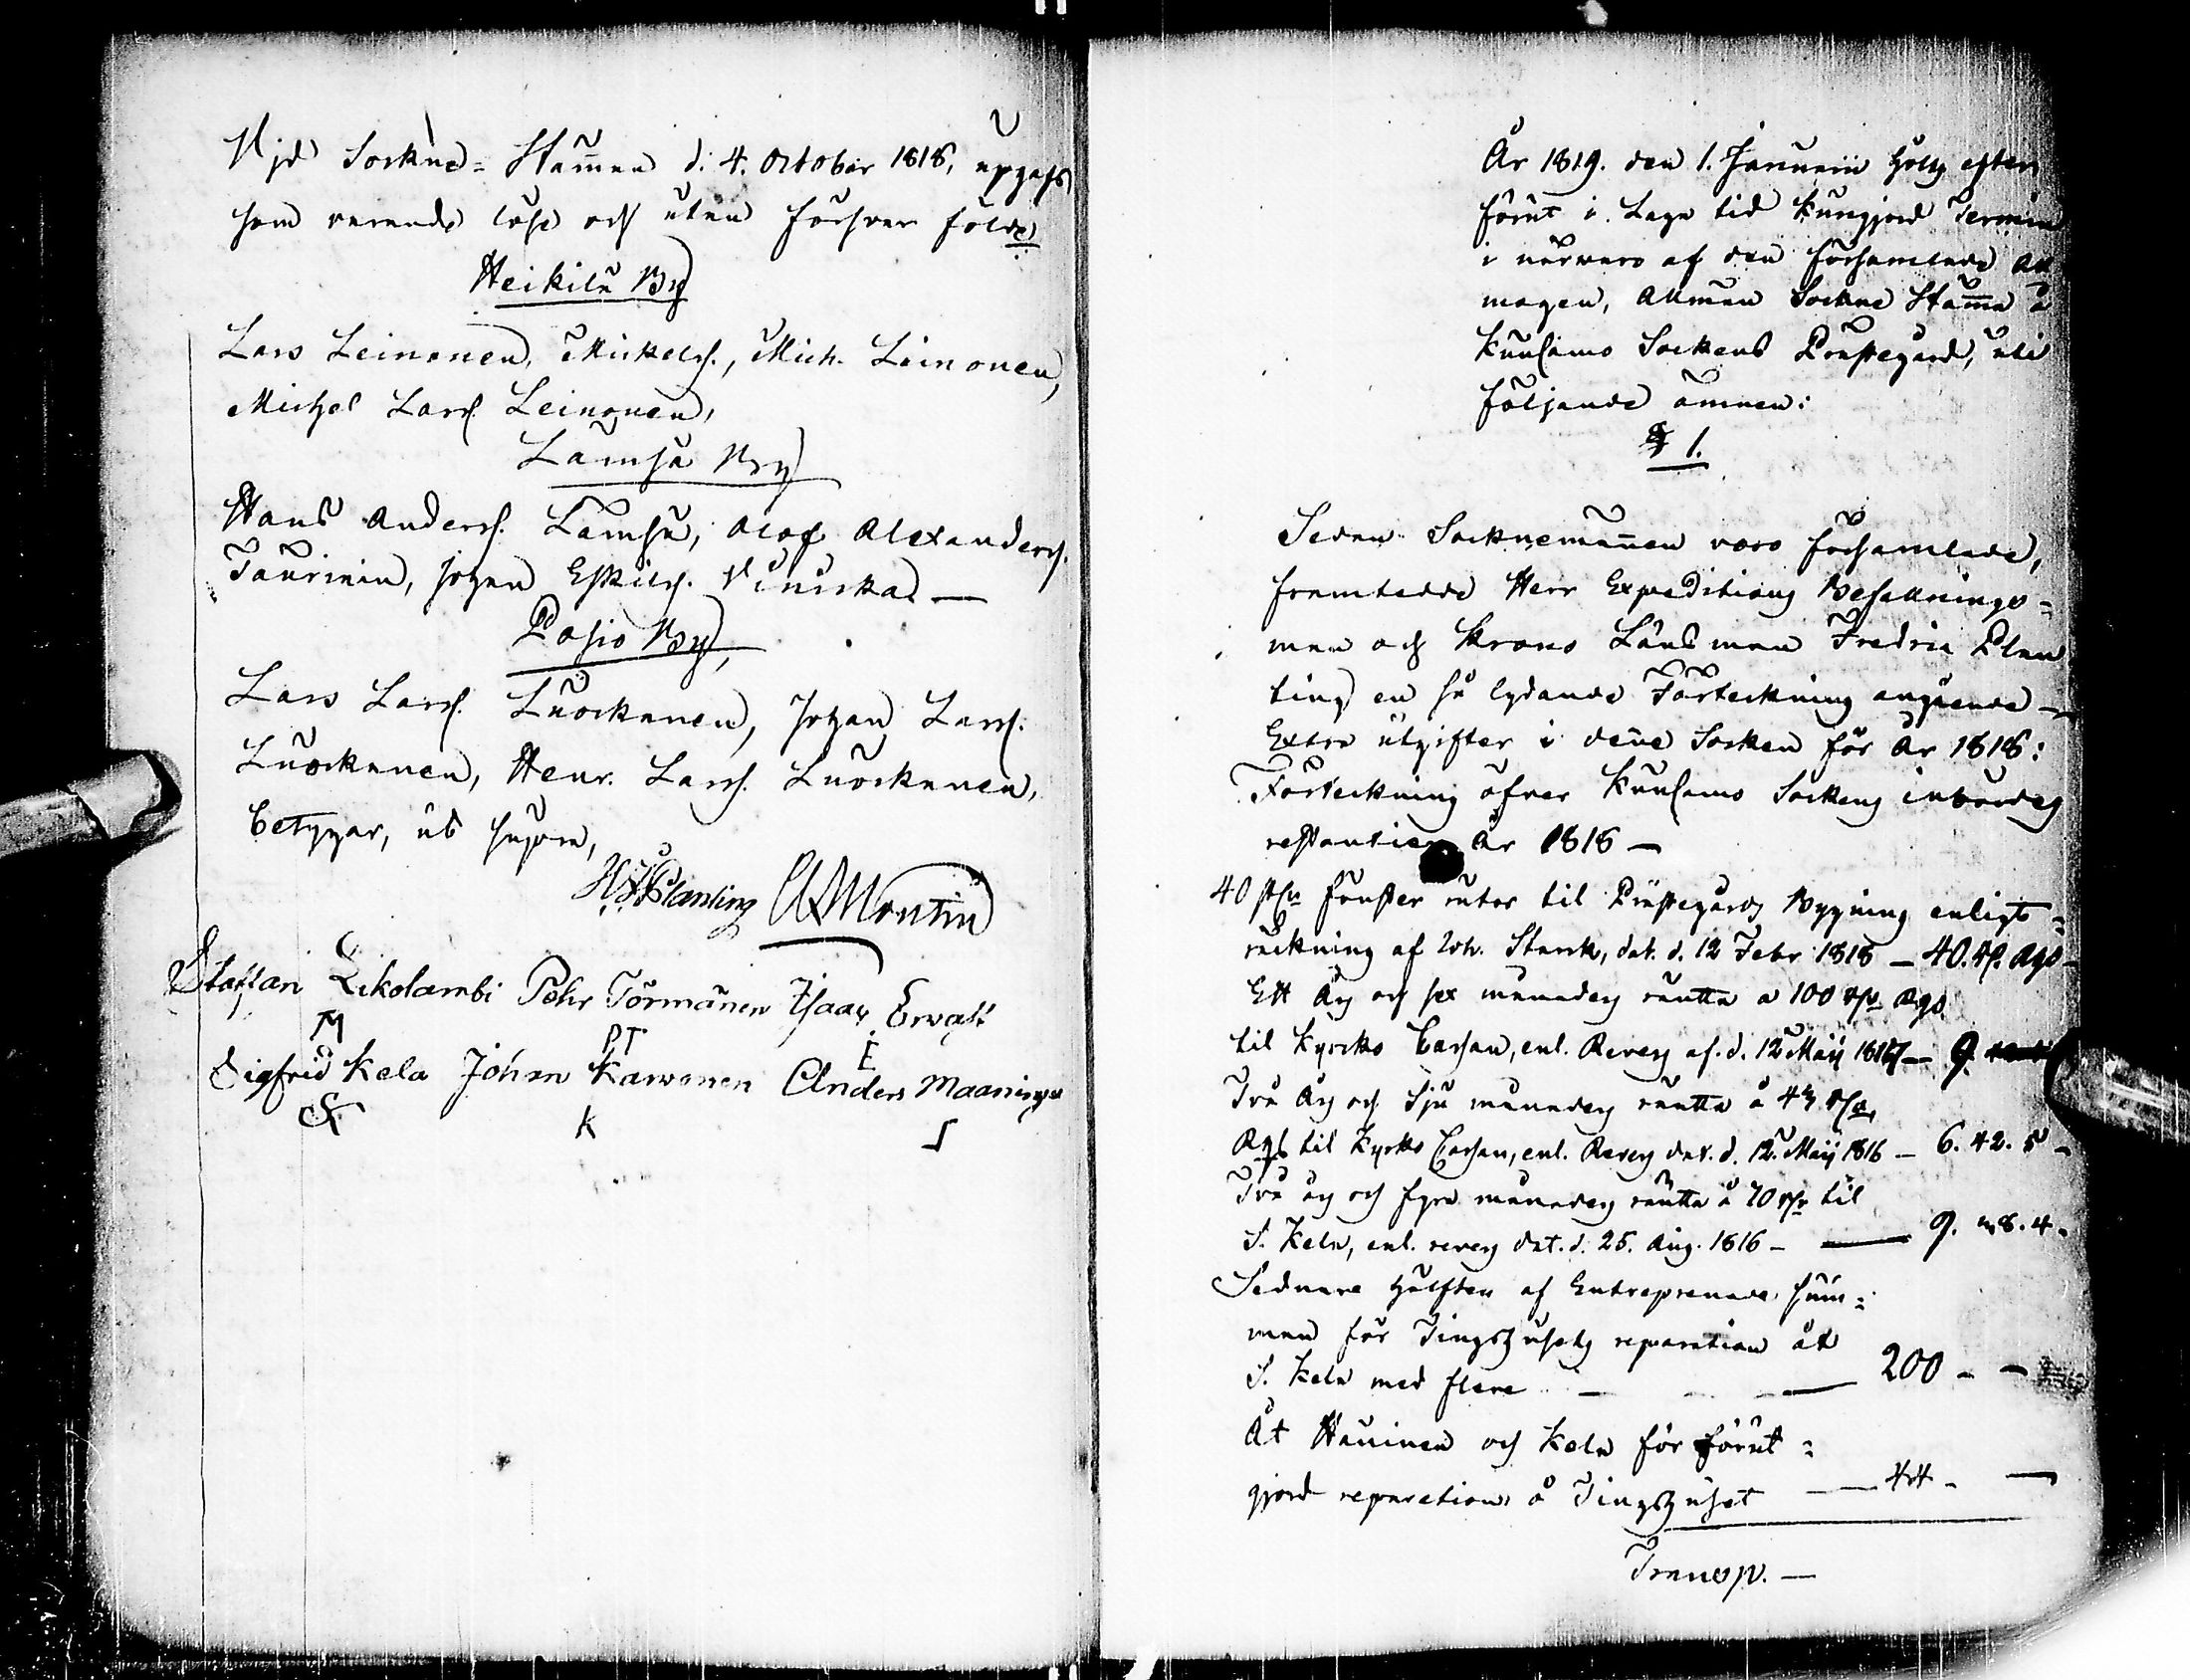 Wid Sockne-Stamman d. 4. October 1818, upgafs
som varande löse och utan försvar följde
Heikilä By
Lars Leinonen, Mickelss., Mich. Leinonen,
Michel Larss. Leinonen,
Lämsä By
Hans Anderss. Lämsä, Olof Alexanderss.
Taurinen, Johan Eskilss.
Posio By,
Lars Larss. Luockanen, Johan Larss.
Luockanen, Henr. Larss. Luockanen,
betygar, ut supra,
Planting Montin
Staffan Likolambi Pehr Törmänen Isaac Ervast
M PT E
Sigfrid Kela Johan Karvonen Anders Maaninga
K
År 1819. den 1. Januarii hölts efter
förut i Laga tid kungjord Termin
i närvaro af den församlade All
mogen, Allmän Sockne Stamma å
Kuusamo Sockens Prästegård, uti
följande ämnen:
§ 1.
Sedan Socknemännen voro församlade,
framtedde Herr Expeditions Befallnings=
man och Krono Länsman Fredric Plan
ting en så lydande Förteckning angående
Extra utgifter i denne Socken för År 1818:
Förteckning öfver Kuusamo Sockens inbördes
restantier År 1818 —
40 st:r Fönster rutor til Prästegårds Bygning enligt
räckning af Joh. Stark, dat. d. 12 Febr. 1818 — 40. Rp. Ags
Ett År och sex månaders ränta a 100 Rp. Ags
til Kyrcko Cassan, enl. Revers af. d. 12 Maij 1817 — 9.
Två År och Sju månaders ränta å 43 Rp.
Ags til Kyrko Cassan, enl. Revers dat. d. 12. Maij 1816 — 6. 42. 5 -
Två års och fyra månaders ränta å 70 Rp. til
S. Kela, enl. revers dat. d. 25. Aug. 1816 — 9. 38. 4.
Sednare hälften af Entreprenade sum=
man för Tingshusets reparation åt
S. Kela med flere — 200 - -
Åt Häninen och Kela för förut=
gjord reparation å Tingshuset — 44 - —
Transp. —